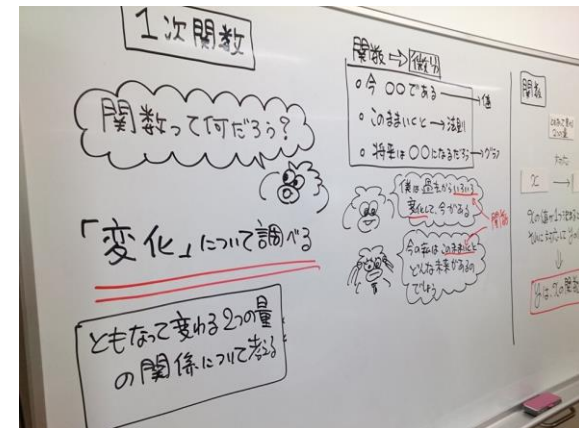 1次関数
関数って何だろう?
「変化」について調べる
ともなって変わる2つの量
の関係について考える
関数⇨微分
• 今 〇〇である→値
• このままいくと→法則
• 将来は〇〇になるだろう→グラフ
僕は過去からいろいろ
変化して、今がある
関数
今の私はこのままいくと
どんな未来があるの
でしょう
関数
2つの量
x
xの値が1つ決まると
それに対応してyの
⇓
yは、xの関数